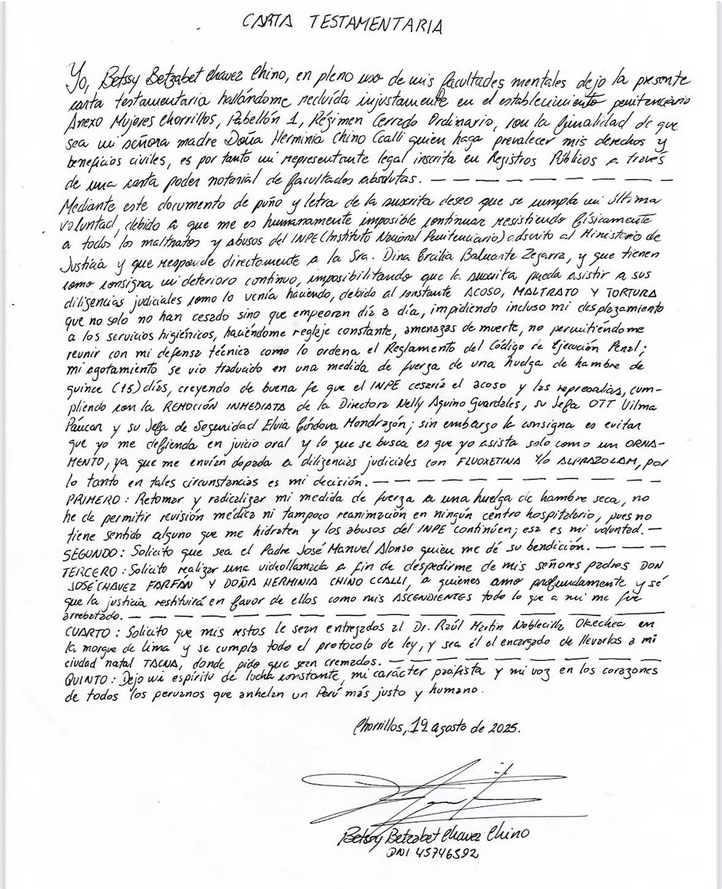 CARTA TESTAMENTARIA
Yo, Betssy Betzabet Chavez Chino, en pleno uso de mis facultades mentales dejo la presente
carta testamentaria hallándome recluida injustamente en el establecimiento penitenciario
Anexo Mujeres Chorrillos, Pabellón 1, Régimen Cerrado Ordinario, con la finalidad de que
sea mi señora madre Doña Herminia Chino Ccalli quien haga prevalecer mis derechos y
beneficios civiles, es por tanto mi representante legal inscrita en Registros Públicos a través
de una carta poder notarial de facultades absolutas. — — — — — — — — —
Mediante este documento de puño y letra de la suscrita deseo que se cumpla mi última
voluntad, debido a que me es humanamente imposible continuar resistiendo físicamente
a todos los maltratos y abusos del INPE (Instituto Nacional Penitenciario) adscrito al Ministerio de
Justicia y que responde directamente a la Sra. Dina Ercilia Boluarte Zegarra, y que tienen
como consigna mi deterioro continuo, imposibilitando que la suscrita pueda asistir a sus
diligencias judiciales como lo venía haciendo, debido al constante ACOSO, MALTRATO Y TORTURA
que no solo no han cesado sino que empeoran día a día, impidiendo incluso mi desplazamiento
a los servicios higiénicos, haciéndome reglaje constante, amenazas de muerte, no permitiéndome
reunir con mi defensa técnica como lo ordena el Reglamento del Código de Ejecución Penal;
mi agotamiento se vio traducido en una medida de fuerza de una huelga de hambre de
quince (15) días, creyendo de buena fe que el INPE cesaría el acoso y las represalias, cum-
pliendo con la REMOCIÓN INMEDIATA de la Directora Nelly Aquino Guardales, su Jefa OTT Vilma
Paucar y su Jefa de Seguridad Elvia Córdova Mondragón; sin embargo la consigna es evitar
que yo me defienda en juicio oral y lo que se busca es que yo asista solo como un ORNA-
MENTO, ya que me envían dopada a diligencias judiciales con FLUOXETINA Y/O ALPRAZOLAM, por
lo tanto en tales circunstancias es mi decisión. — — — — — — — — —
PRIMERO: Retomar y radicalizar mi medida de fuerza a una huelga de hambre seca, no
he de permitir revisión médica ni tampoco reanimación en ningún centro hospitalario, pues no
tiene sentido alguno que me hidraten y los abusos del INPE continúen; esa es mi voluntad. —
SEGUNDO: Solicito que sea el Padre José Manuel Alonso quien me dé su bendición. — — — —
TERCERO: Solicito realizar una videollamada a fin de despedirme de mis señores padres DON
JOSÉ CHAVEZ FARFÁN Y DOÑA HERMINIA CHINO CCALLI, a quienes amo profundamente y sé
que la justicia restituirá en favor de ellos como mis ASCENDIENTES todo lo que a mi me fue
arrebatado. — — — — — — — — — — — — — — —
CUARTO: Solicito que mis restos le sean entregados al Dr. Raúl Martin Noblecilla Olaechea en
la morgue de Lima y se cumpla todo el protocolo de ley, y sea él el encargado de llevarlos a mi
ciudad natal TACNA, donde pido que sean cremados. — — — — — — — — —
QUINTO: Dejo mi espíritu de lucha constante, mi carácter pacifista y mi voz en los corazones
de todos los peruanos que anhelan un Perú más justo y humano.
Chorrillos, 19 agosto de 2025.
Betssy Betzabet Chavez Chino
DNI 45746592